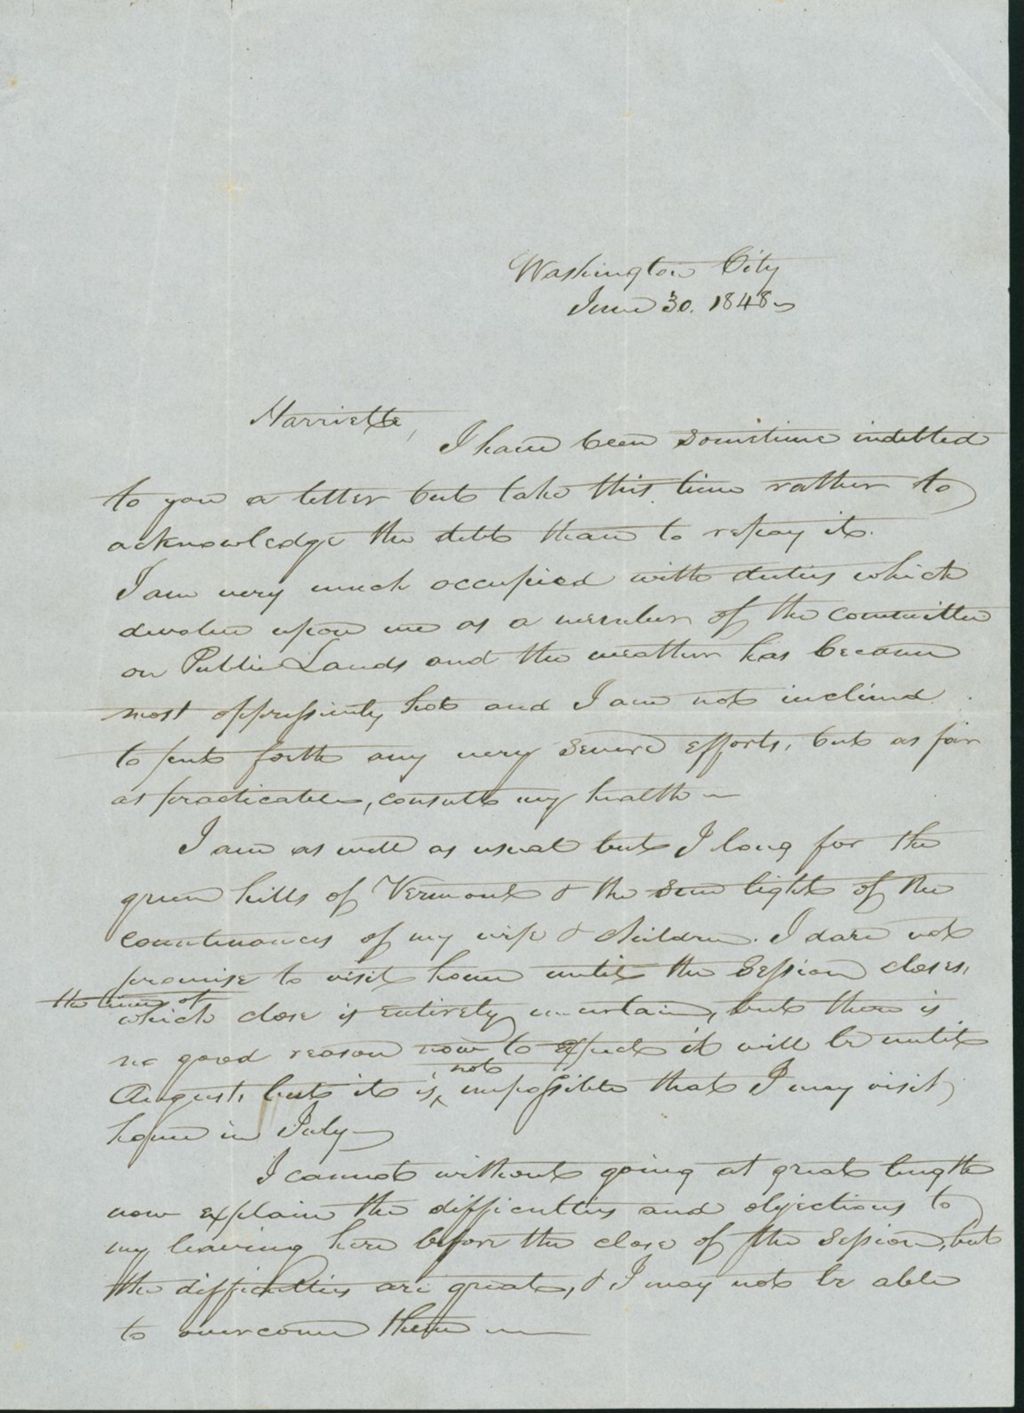 Washington City
June 30. 1848
Harriette,
I have been sometime indebted
to you a letter but take this time rather to
acknowledge the debt than to repay it.
I am very much occupied with duties which
devolve upon me as a member of the committee
on Public Lands and the weather has become
most oppressively hot and I am not inclined
to put forth any very severe efforts, but as far
as practicable, consult my health —
I am as well as usual but I long for the
green hills of Vermont & the sun light of the
countenances of my wife & children. I dare not
promise to visit home until the Session closes,
the time of
which close is entirely uncertain, but there is
no good reason now to expect it will be until
not
August, but it is ‸ impossible that I may visit
home in July —
I cannot without going at great length
now explain the difficulties and objections to
my leaving here before the close of the Session, but
the difficulties are great, & I may not be able
to overcome them —